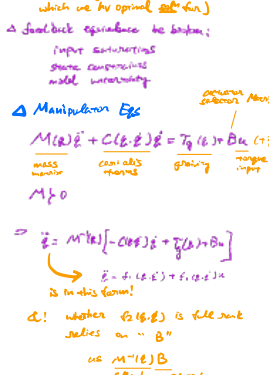 which we by optimal soln for)
Δ feedback equivalence be broken:
input saturations
state constraints
model uncertainty
Δ Manipulator Eqs
actuator
selector
M(q)q̈ + C(q,q̇)q̇ = τg(q) + Bu
mass
matrix
coriolis
terms
gravity
torque
input
M ≻ 0
⇒ q̈ = M⁻¹(q)[-C(q,q̇)q̇ + τg(q) + Bu]
q̈ = f₁(q,q̇) + f₂(q,q̇)u
is in this form!
Q! whether f₂(q,q̇) is full rank
relies on "B"
as M⁻¹(q)B